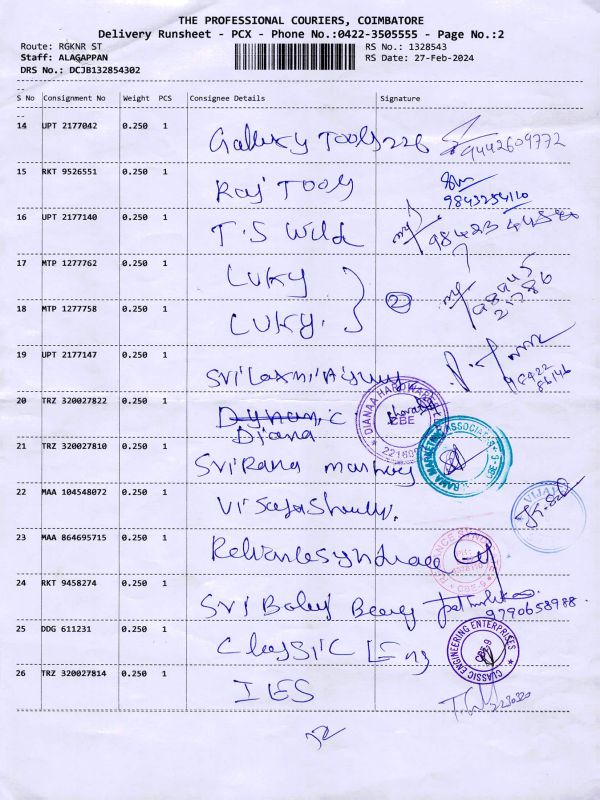 THE PROFESSIONAL COURIERS, COIMBATORE
Delivery Runsheet - PCX - Phone No.:0422-3505555 - Page No.:2
Route: RGKNR ST RS No.: 1328543
Staff: ALAGAPPAN RS Date: 27-Feb-2024
DRS No.: DCJB132854302
S No Consignment No Weight PCS Consignee Details Signature
14 UPT 2177042 0.250 1 Gallery Tools 226 9442609772
15 RKT 9526551 0.250 1 Raj Tools
9843254110
16 UPT 2177140 0.250 1 T.S Weld 98423
17 MTP 1277762 0.250 1 Luky
18 MTP 1277758 0.250 1 Luky. 2
19 UPT 2177147 0.250 1 Sri Laxmi
20 TRZ 320027822 0.250 1 Dynamic
Diana
DIANAA HARDWARE CBE
21 TRZ 320027810 0.250 1 Sri Rana
RAMA MARKETING ASSOCIATES CBE-9
22 MAA 104548072 0.250 1
VIJAY
23 MAA 864695715 0.250 1 Reliance Syndicate
CBE-9
24 RKT 9458274 0.250 1 Sri Balaji
9790658988
25 DDG 611231 0.250 1 Classic Eng
CLASSIC ENGINEERING ENTERPRISES CBE-9
26 TRZ 320027814 0.250 1 IES